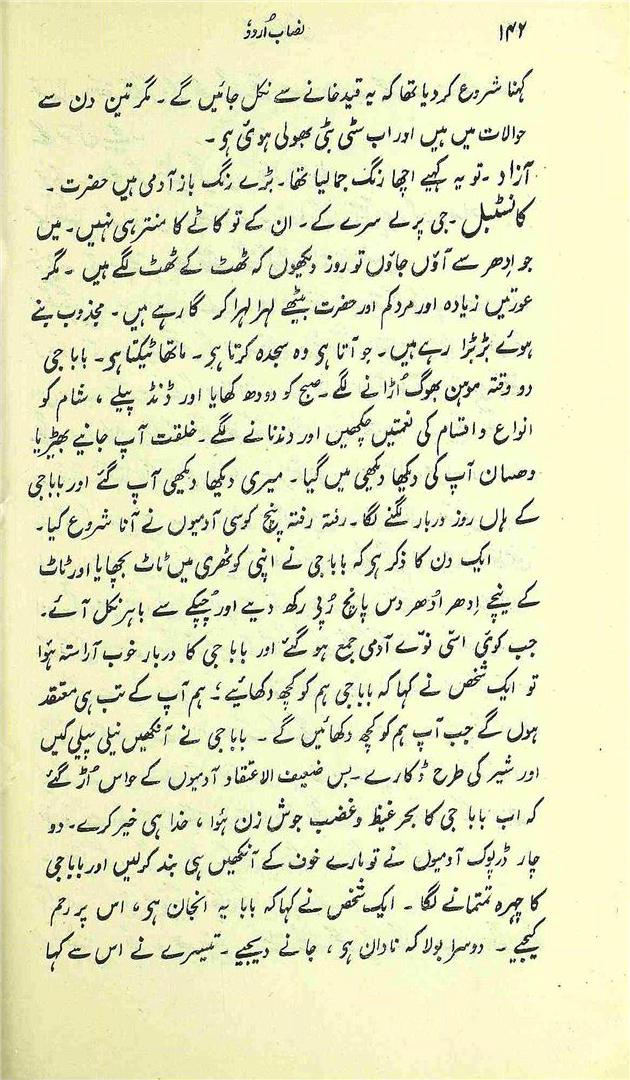 ۱۴۶
نصابِ اُردو
کہنا شروع کر دیا تھا کہ یہ قید خانے سے نکل جائیں گے ۔ مگر تین دن سے
حوالات میں ہیں اور اب سٹی بٹی بھولی ہوئی ہی ۔
آزاد ۔ تو یہ کہیے اچھا رنگ جما لیا تھا ۔ بڑے رنگ باز آدمی ہیں حضرت ۔
کانسٹبل ۔ جی پرلے سرے کے ۔ ان کے تو کاٹے کا منتر ہی نہیں ۔ میں
جو اِدھر سے آؤں جاؤں تو روز دیکھوں کہ ٹھٹ کے ٹھٹ لگے ہیں ۔ مگر
عورتیں زیادہ اور مرد کم اور حضرت بیٹھے لہرا لہرا کر گا رہے ہیں ۔ مجذوب بنے
ہوئے بڑبڑا رہے ہیں ۔ جو آتا ہی وہ سجدہ کرتا ہی ۔ ماتھا ٹیکتا ہی ۔ بابا جی
دو وقتہ موہن بھوگ اُڑانے لگے ۔ صبح کو دودھ کھایا اور ڈنڈ پیلے ، شام کو
انواع و اقسام کی نعمتیں چکھیں اور دندنانے لگے ۔ خلقت آپ جانیے بھیڑیا
دھسان آپ کی دیکھا دیکھی میں گیا ۔ میری دیکھا دیکھی آپ گئے اور بابا جی
کے ہاں روز دربار لگنے لگا ۔ رفتہ رفتہ پنچ کوسی آدمیوں نے آنا شروع کیا ۔
ایک دن کا ذکر ہی کہ بابا جی نے اپنی کوٹھری میں ٹاٹ بچھایا اور ٹاٹ
کے نیچے اِدھر اُدھر دس پانچ رُپی رکھ دیے اور چُپکے سے باہر نکل آئے ۔
جب کوئی اسّی نوّے آدمی جمع ہو گئے اور بابا جی کا دربار خوب آراستہ ہؤا
تو ایک شخص نے کہا کہ بابا جی ہم کو کچھ دکھائیے ؛ ہم آپ کے تب ہی معتقد
ہوں گے جب آپ ہم کو کچھ دکھائیں گے ۔ بابا جی نے آنکھیں نیلی پیلی کیں
اور شیر کی طرح ڈکارے ۔ بس ضعیف الاعتقاد آدمیوں کے حواس اُڑ گئے
کہ اب بابا جی کا بحرِ غیظ و غضب جوش زن ہؤا ، خدا ہی خیر کرے ۔ دو
چار ڈرپوک آدمیوں نے تو مارے خوف کے آنکھیں ہی بند کر لیں اور بابا جی
کا چہرہ تمتمانے لگا ۔ ایک شخص نے کہا کہ بابا یہ انجان ہی ، اس پر رحم
کیجیے ۔ دوسرا بولا کہ نادان ہی ، جانے دیجیے ۔ تیسرے نے اس سے کہا